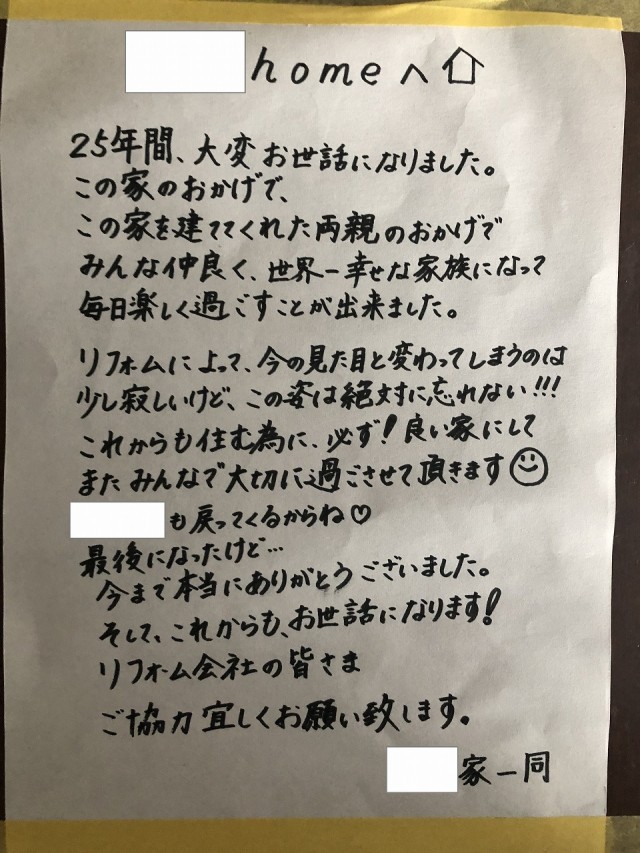 homeへ
25年間、大変お世話になりました。
この家のおかげで、
この家を建ててくれた両親のおかげで
みんな仲良く、世界一幸せな家族になって
毎日楽しく過ごすことが出来ました。
リフォームによって、今の見た目と変わってしまうのは
少し寂しいけど、この姿は絶対に忘れない!!!
これからも住む為に、必ず!良い家にして
またみんなで大切に過ごさせて頂きます
も戻ってくるからね♡
最後になったけど…
今まで本当にありがとうございました。
そして、これからも、お世話になります!
リフォーム会社の皆さま
ご協力宜しくお願い致します。
家一同